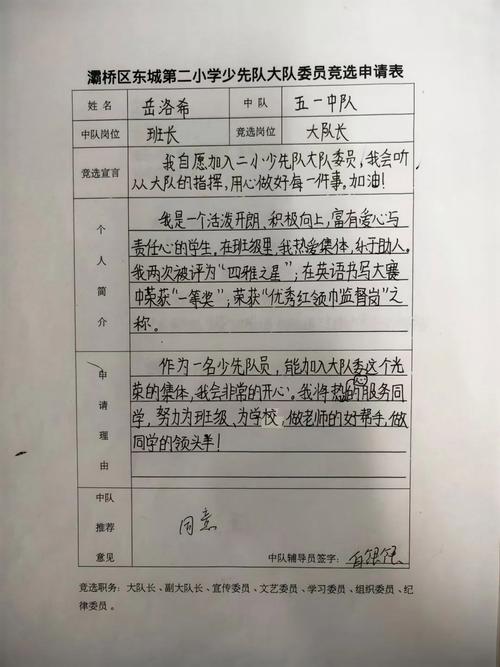 灞桥区东城第二小学少先队大队委员竞选申请表
姓名 岳洛希 中队 五一中队
中队岗位 班长 竞选岗位 大队长
竞选宣言 我自愿加入二小少先队大队委员,我会听
从大队的指挥,用心做好每一件事。加油!
个人简介 我是一个活泼开朗、积极向上,富有爱心与
责任心的学生。在班级里,我热爱集体,乐于助人。
我两次被评为“四雅之星”;在英语书写大赛
中荣获“一等奖”;荣获“优秀红领巾监督岗”之
称。
申请理由 作为一名少先队员,能加入大队委这个光
荣的集体,我会非常的开心。我将热的服务同
学,努力为班级、为学校,做老师的好帮手,做
同学的领头羊!
中队推荐意见 同意
中队辅导员签字:
竞选职务:大队长、副大队长、宣传委员、文艺委员、学习委员、组织委员、纪
律委员。